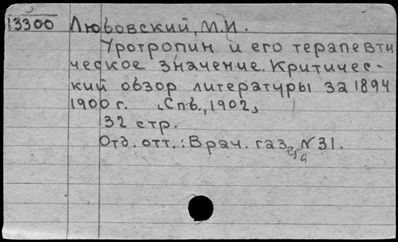 3300 Любовский, М.И.
Уротропин и его терапевти
ческое значение. Критичес-
кий обзор литературы за 1894
1900 г. Спб., 1902,
32 стр.
Отд. отт.: Врач. газ, №31.